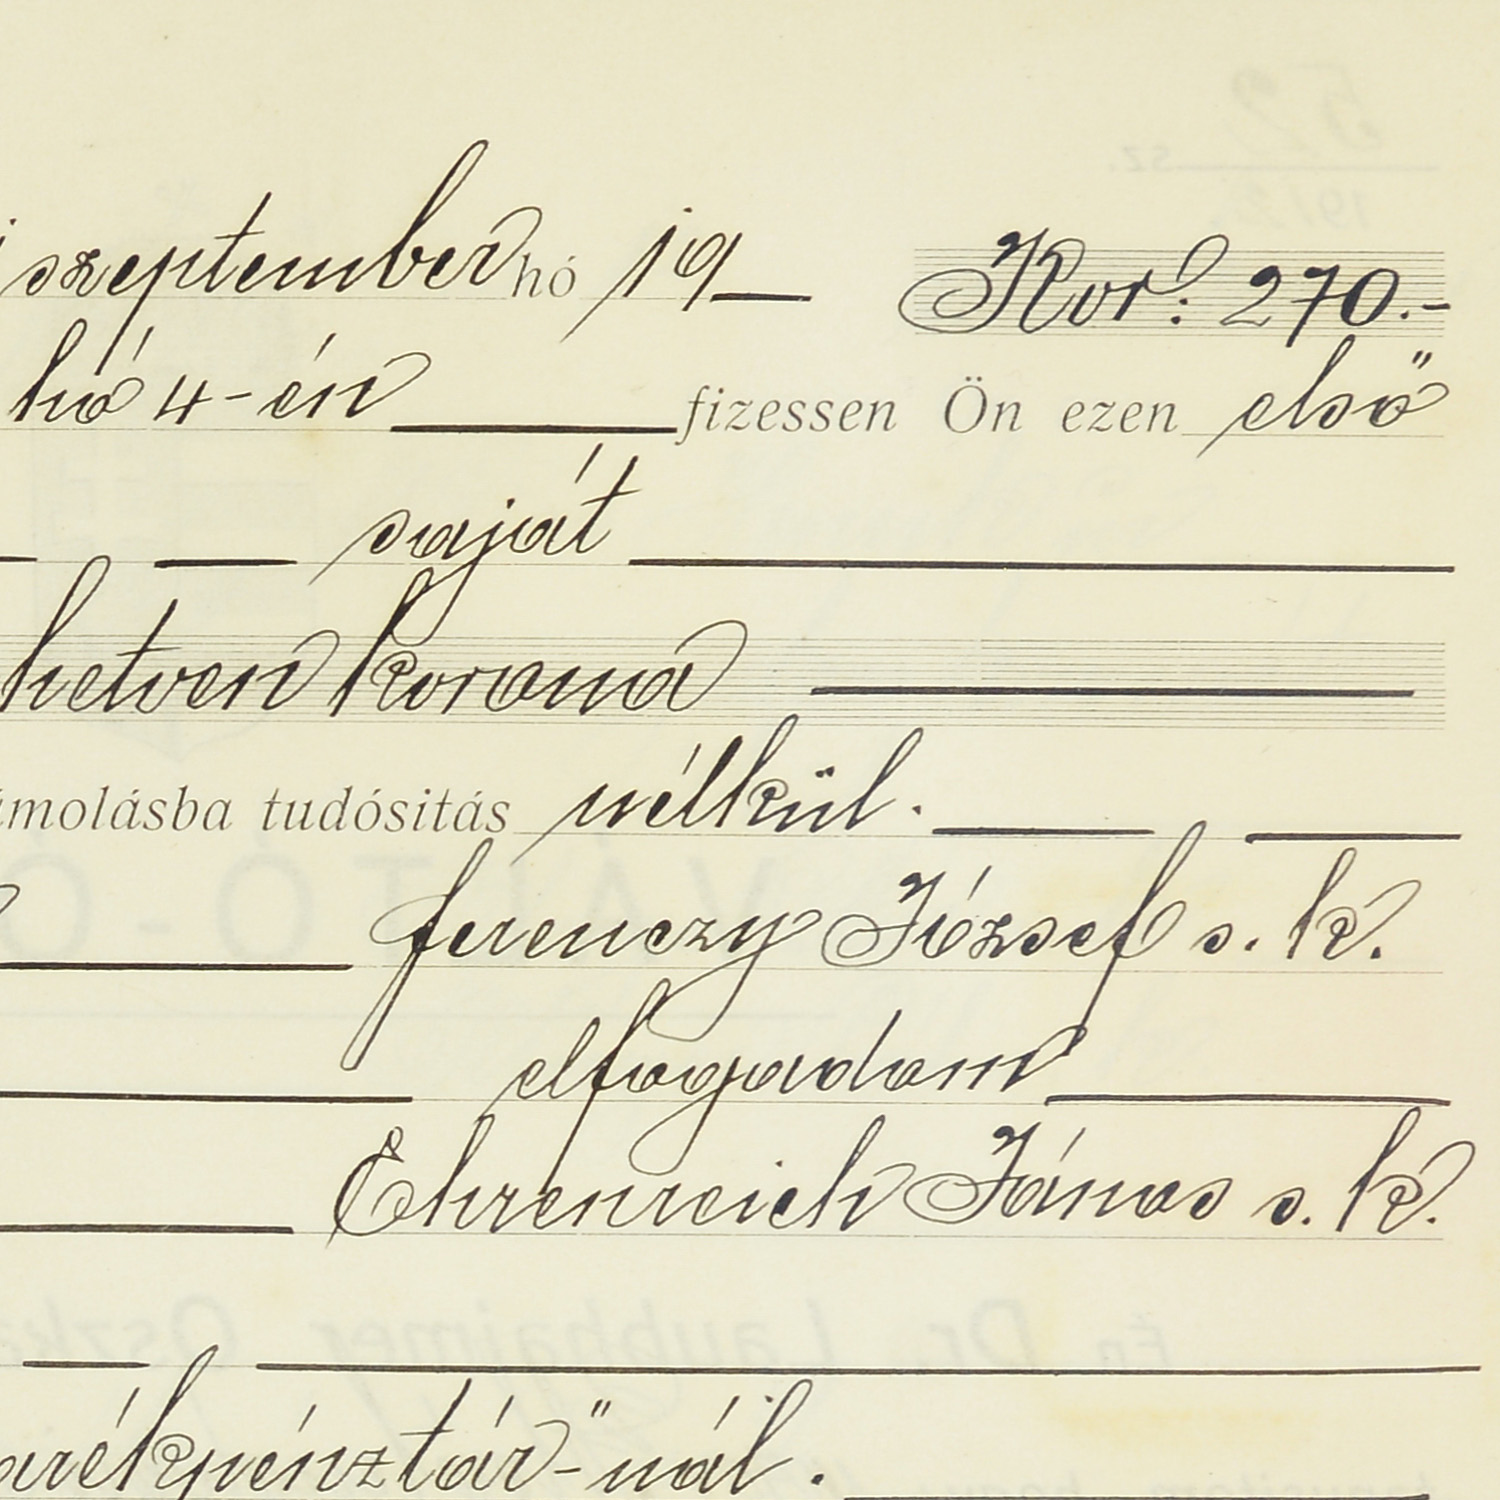 szeptember hó 19 Kor: 270.-
hó 4-én fizessen Ön ezen első
saját
hetven korona
ámolásba tudósitás nélkül.
Ferenczy József s. k.
elfogadom
Ehrenreich János s. k.
arékpénztár"-nál.